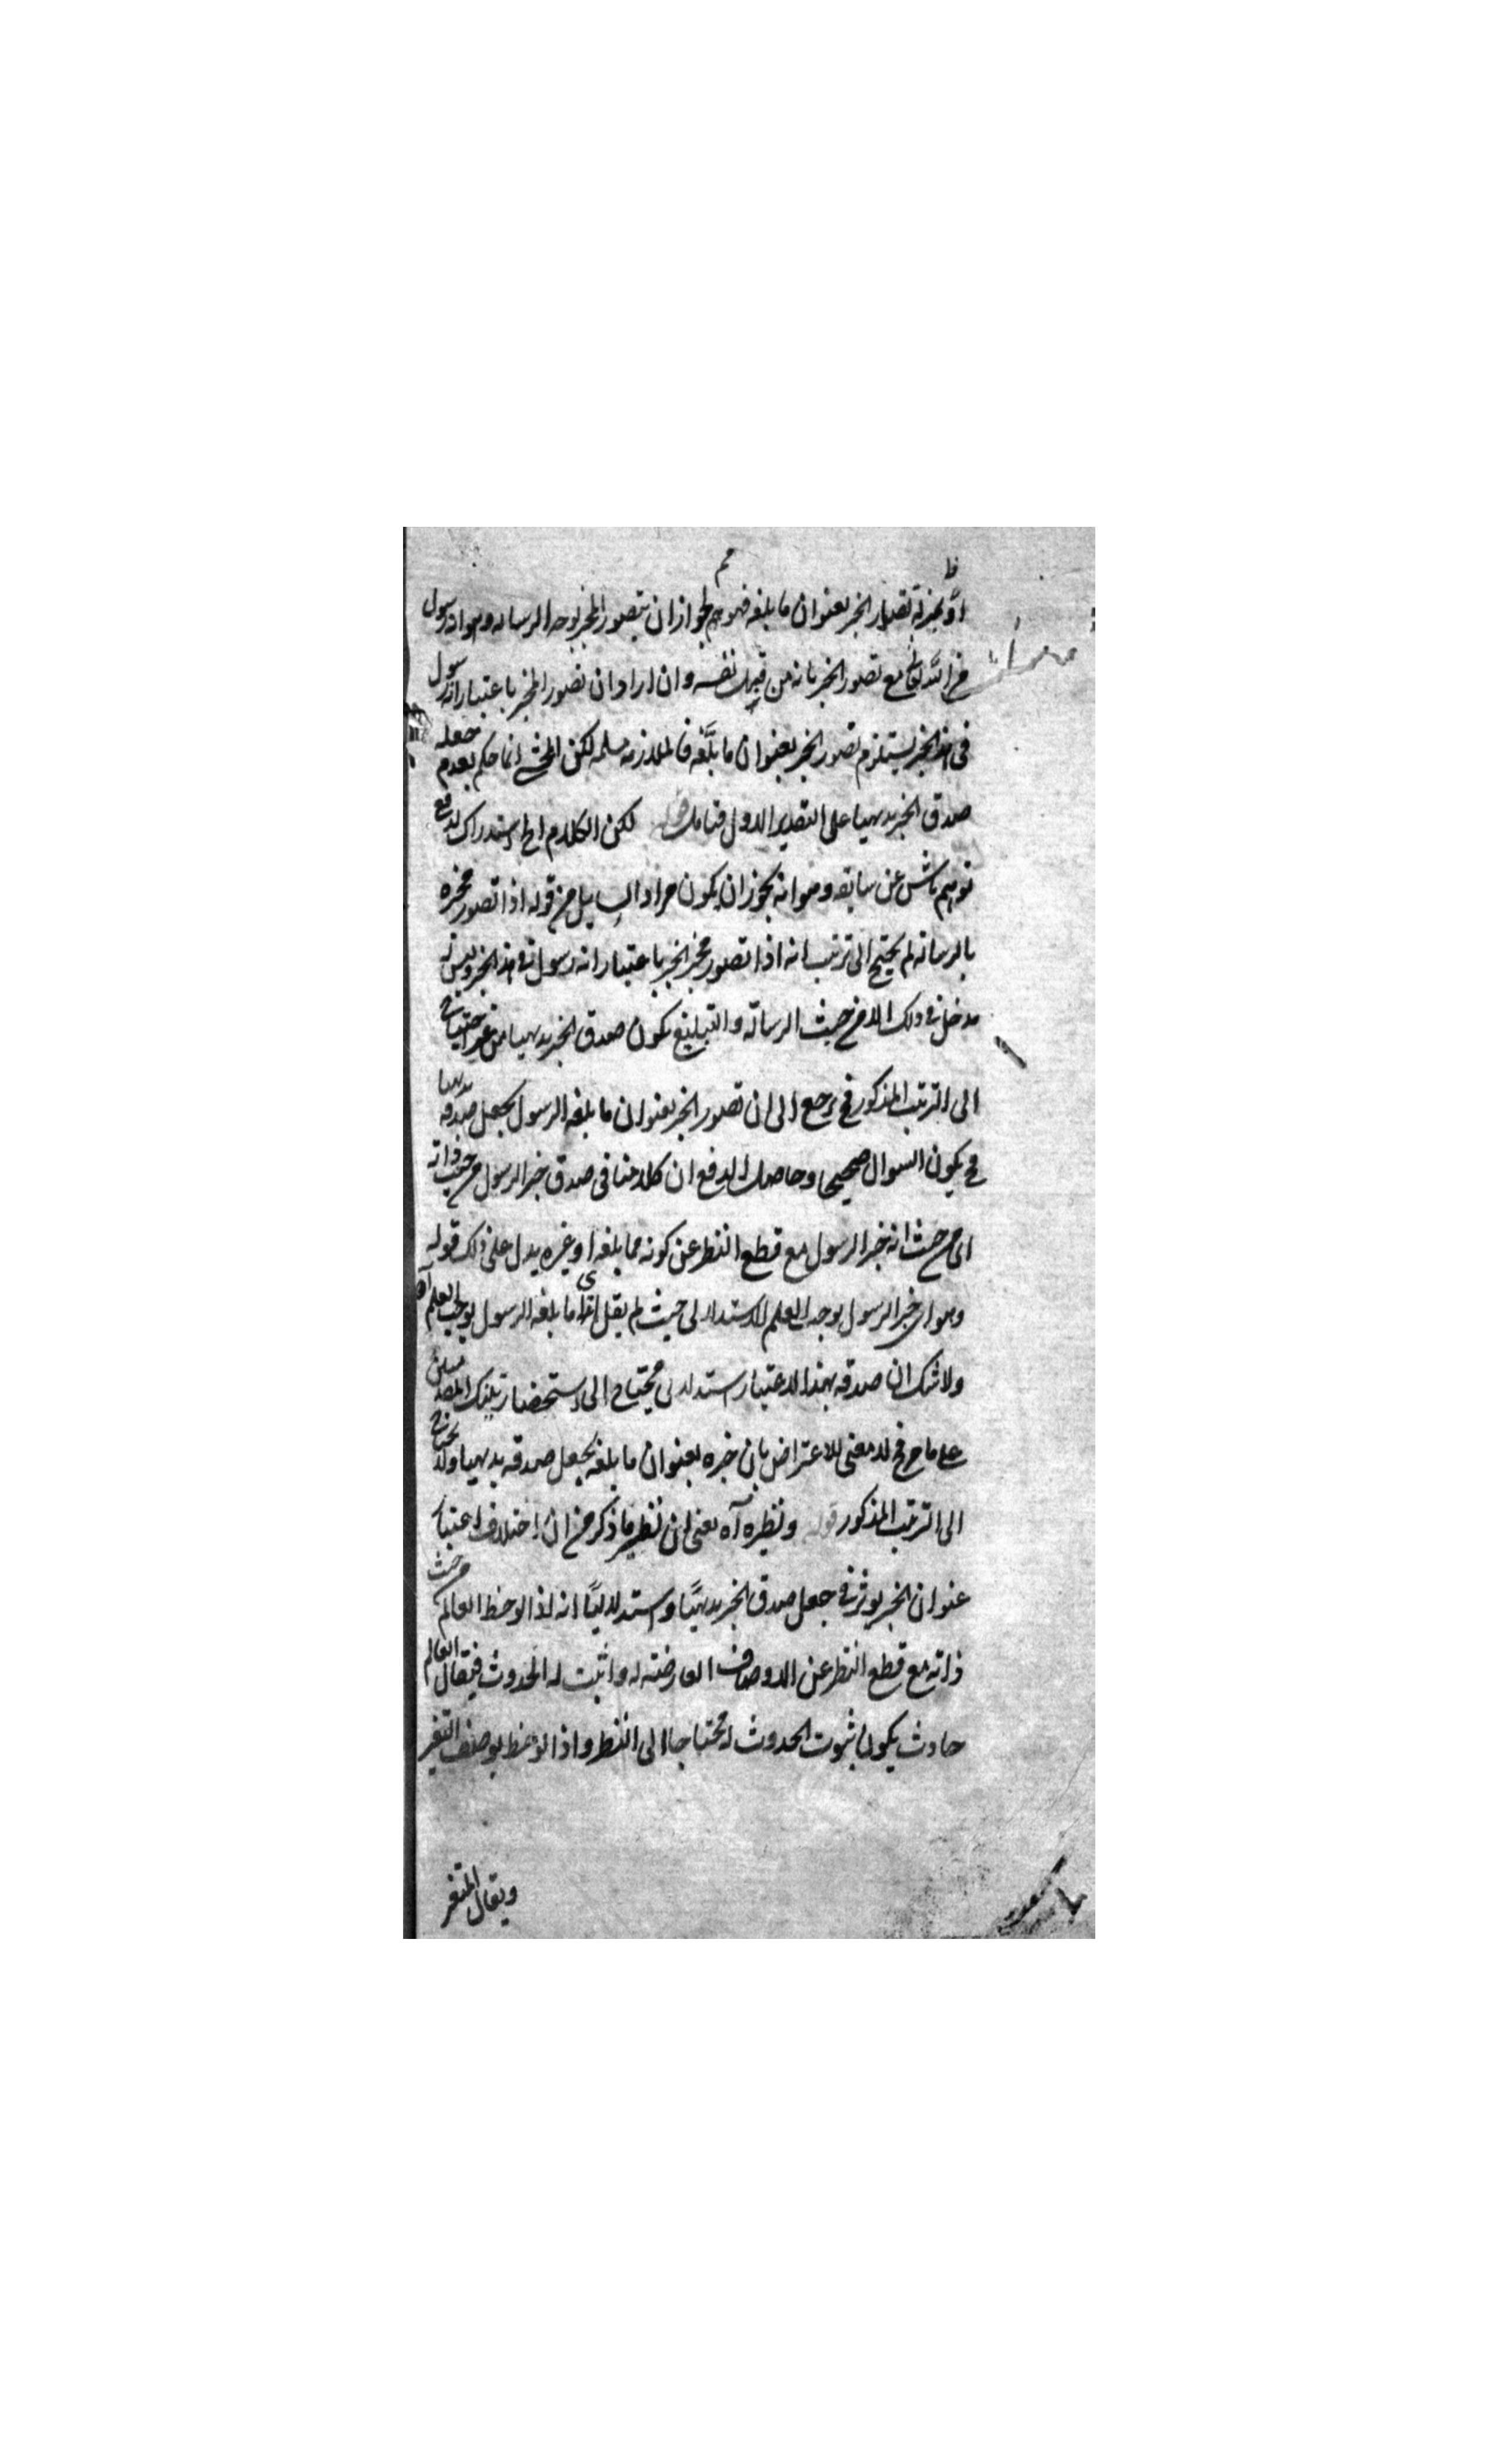 او بمنزلة تصور الخبر بعنوان ما بلغه فهو مم لجواز ان يتصور المخبر بوجه الرسالة وهو انه رسول
من الله تعالى مع تصور الخبر بانه من قبل نفسه وان اراد ان تصور المخبر باعتبار انه رسول
فى هذا الخبر يستلزم تصور الخبر بعنوان ما بلّغه فالملازمة مسلمة لكن المحشى انما حكم بعدم جعله
صدق الخبر بديهيا على التقدير الاول فتامل لكن الكلام الخ استدراك لدفع
توهم ناش عن سابقه وهو انه يجوز ان يكون مراد السايل من قوله اذا تصور مخبره
بالرسالة لم يحتج الى ترتيب انه اذا تصور مخبر الخبر باعتبار انه رسول فى هذا الخبر وليس له
مدخل فى ذلك الا من حيث الرسالة والتبليغ يكون صدق الخبر بديهيا من غير احتياج
الى الترتيب المذكور فح يرجع الى ان تصور الخبر بعنوان ما بلغه الرسول يجعل صدقه بديهيا
فح يكون السوال صحيحا وحاصل الدفع ان كلامنا فى صدق خبر الرسول من حيث ذاته
اى من حيث انه خبر الرسول مع قطع النظر عن كونه مما بلغه او غيره يدل على ذلك قوله
وهو اى خبر الرسول يوجب العلم الاستدلالى حيث لم يقل اى ما بلغه الرسول يوجب العلم آه
ولا شك ان صدقه بهذا الاعتبار استدلالى محتاج الى استحضار تينك المقدمتين
على ما مر فح لا معنى للاعتراض بان خبره بعنوان ما بلغه يجعل صدقه بديهيا ولا يحتاج
الى الترتيب المذكور قوله ونظيره آه يعنى ان نظير ما ذكر من ان اختلاف اعتبار
عنوان الخبر يوثر فى جعل صدق الخبر بديهيًا واستدلاليًا انه اذا لوحظ العالم من حيث
ذاته مع قطع النظر عن الاوصاف العارضة له واثبت له الحدوث فيقال العالم
حادث يكون ثبوت الحدوث له محتاجا الى النظر واذا لوحظ بوصف التغير
ويقال المتغير